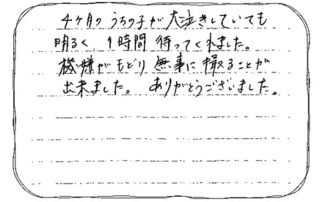 4ヶ月のうちの子が大泣きしていても
明るく1時間待ってくれました。
機嫌がもどり無事に撮ることが
出来ました。ありがとうございました。